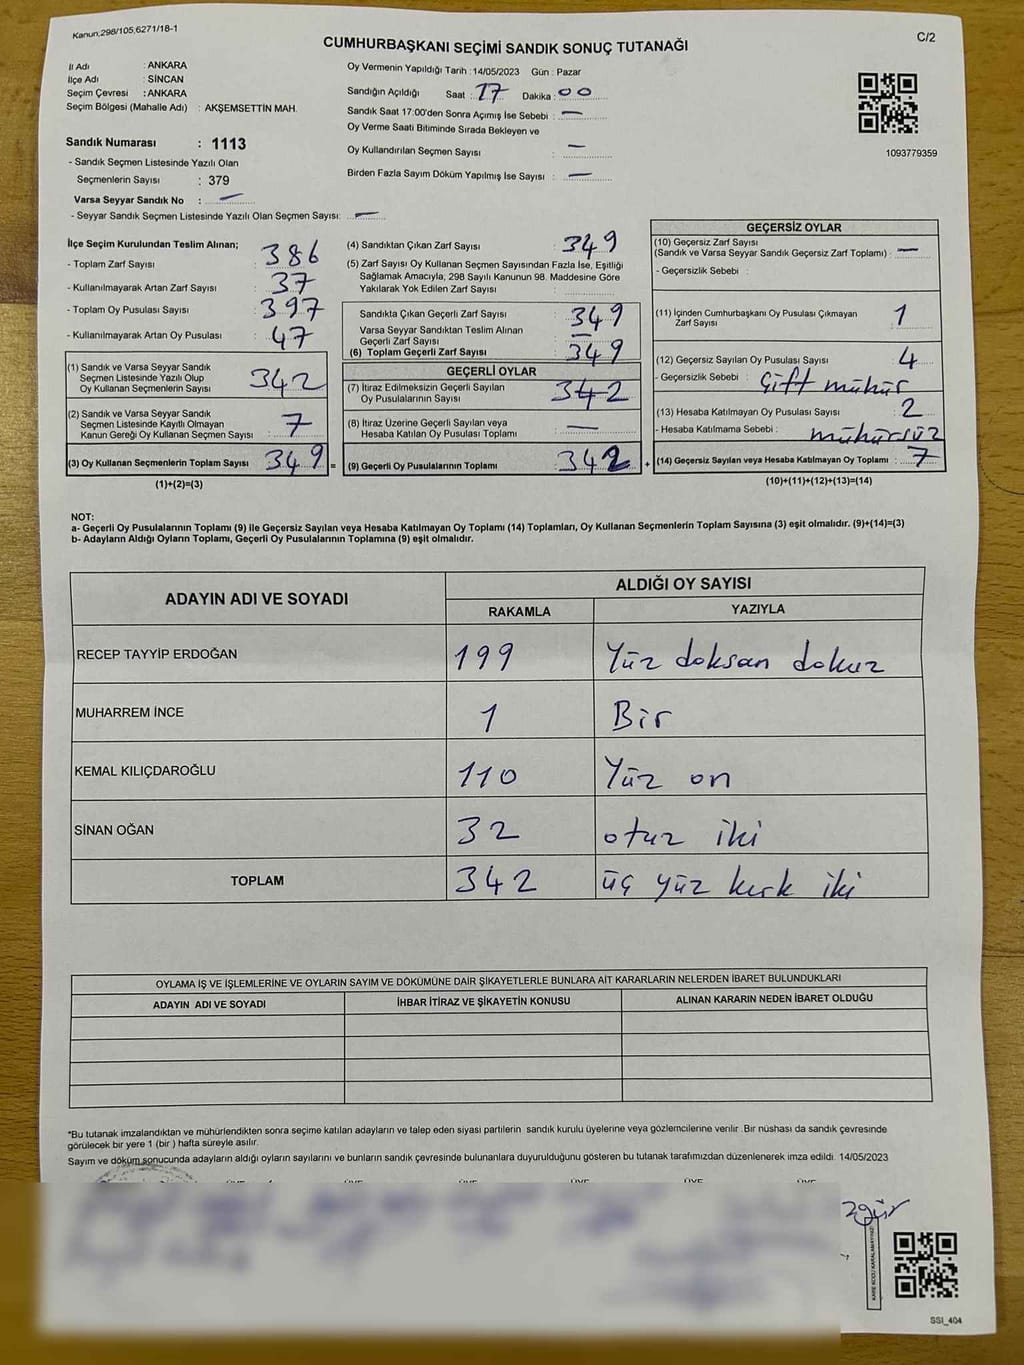 Kanun,298/105,6271/18-1
C/2
CUMHURBAŞKANI SEÇİMİ SANDIK SONUÇ TUTANAĞI
İl Adı : ANKARA
İlçe Adı : SİNCAN
Seçim Çevresi : ANKARA
Seçim Bölgesi (Mahalle Adı) : AKŞEMSETTİN MAH.
Sandık Numarası : 1113
- Sandık Seçmen Listesinde Yazılı Olan
Seçmenlerin Sayısı : 379
Varsa Seyyar Sandık No : —
- Seyyar Sandık Seçmen Listesinde Yazılı Olan Seçmen Sayısı: —
Oy Vermenin Yapıldığı Tarih : 14/05/2023 Gün : Pazar
Sandığın Açıldığı Saat : 17 Dakika : 00
Sandık Saat 17:00'den Sonra Açımış İse Sebebi : —
Oy Verme Saati Bitiminde Sırada Bekleyen ve
Oy Kullandırılan Seçmen Sayısı : —
Birden Fazla Sayım Döküm Yapılmış İse Sayısı : —
1093779359
İlçe Seçim Kurulundan Teslim Alınan;
- Toplam Zarf Sayısı : 386
- Kullanılmayarak Artan Zarf Sayısı : 37
- Toplam Oy Pusulası Sayısı : 397
- Kullanılmayarak Artan Oy Pusulası : 47
(1) Sandık ve Varsa Seyyar Sandık
Seçmen Listesinde Yazılı Olup
Oy Kullanan Seçmenlerin Sayısı : 342
(2) Sandık ve Varsa Seyyar Sandık
Seçmen Listesinde Kayıtlı Olmayan
Kanun Gereği Oy Kullanan Seçmen Sayısı : 7
(3) Oy Kullanan Seçmenlerin Toplam Sayısı : 349 =
(1)+(2)=(3)
(4) Sandıktan Çıkan Zarf Sayısı : 349
(5) Zarf Sayısı Oy Kullanan Seçmen Sayısından Fazla İse, Eşitliği
Sağlamak Amacıyla, 298 Sayılı Kanunun 98. Maddesine Göre
Yakılarak Yok Edilen Zarf Sayısı :
Sandıkta Çıkan Geçerli Zarf Sayısı : 349
Varsa Seyyar Sandıktan Teslim Alınan
Geçerli Zarf Sayısı : —
(6) Toplam Geçerli Zarf Sayısı : 349
GEÇERLİ OYLAR
(7) İtiraz Edilmeksizin Geçerli Sayılan
Oy Pusulalarının Sayısı : 342
(8) İtiraz Üzerine Geçerli Sayılan veya
Hesaba Katılan Oy Pusulası Toplamı : —
(9) Geçerli Oy Pusulalarının Toplamı : 342 +
GEÇERSİZ OYLAR
(10) Geçersiz Zarf Sayısı
(Sandık ve Varsa Seyyar Sandık Geçersiz Zarf Toplamı) : —
- Geçersizlik Sebebi :
(11) İçinden Cumhurbaşkanı Oy Pusulası Çıkmayan
Zarf Sayısı : 1
(12) Geçersiz Sayılan Oy Pusulası Sayısı : 4
- Geçersizlik Sebebi : Çift mühür
(13) Hesaba Katılmayan Oy Pusulası Sayısı : 2
- Hesaba Katılmama Sebebi : mühürsüz
(14) Geçersiz Sayılan veya Hesaba Katılmayan Oy Toplamı : 7
(10)+(11)+(12)+(13)=(14)
NOT:
a- Geçerli Oy Pusulalarının Toplamı (9) ile Geçersiz Sayılan veya Hesaba Katılmayan Oy Toplamı (14) Toplamları, Oy Kullanan Seçmenlerin Toplam Sayısına (3) eşit olmalıdır. (9)+(14)=(3)
b- Adayların Aldığı Oyların Toplamı, Geçerli Oy Pusulalarının Toplamına (9) eşit olmalıdır.
ADAYIN ADI VE SOYADI ALDIĞI OY SAYISI
RAKAMLA YAZIYLA
RECEP TAYYİP ERDOĞAN 199 Yüz doksan dokuz
MUHARREM İNCE 1 Bir
KEMAL KILIÇDAROĞLU 110 Yüz on
SİNAN OĞAN 32 otuz iki
TOPLAM 342 üç yüz kırk iki
OYLAMA İŞ VE İŞLEMLERİNE VE OYLARIN SAYIM VE DÖKÜMÜNE DAİR ŞİKAYETLERLE BUNLARA AİT KARARLARIN NELERDEN İBARET BULUNDUKLARI
ADAYIN ADI VE SOYADI İHBAR İTİRAZ VE ŞİKAYETİN KONUSU ALINAN KARARIN NEDEN İBARET OLDUĞU
*Bu tutanak imzalandıktan ve mühürlendikten sonra seçime katılan adayların ve talep eden siyasi partilerin sandık kurulu üyelerine veya gözlemcilerine verilir. Bir nüshası da sandık çevresinde
görülecek bir yere 1 (bir ) hafta süreyle asılır.
Sayım ve döküm sonucunda adayların aldığı oyların sayılarını ve bunların sandık çevresinde bulunanlara duyurulduğunu gösteren bu tutanak tarafımızdan düzenlenerek imza edildi. 14/05/2023
KARE KODU KARALAMAYINIZ
SSI_404